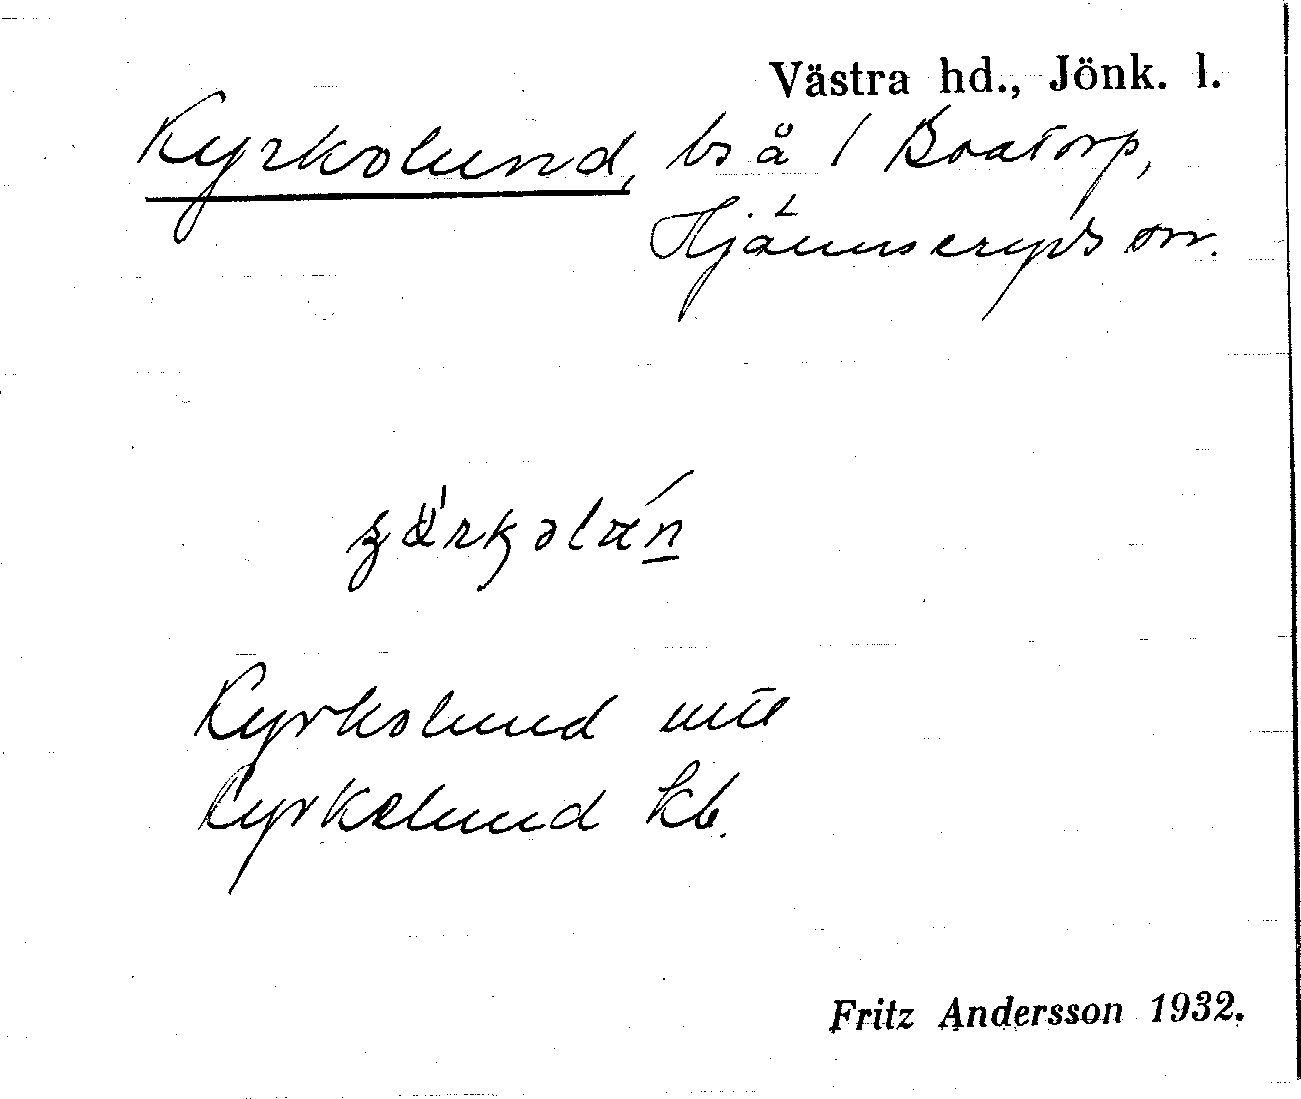 Västra hd., Jönk. l.
Kyrkolund, bs å / Boatorp,
Hjälmseryds sn.
Kyrkolund uttl
Kyrkelund kb.
Fritz Andersson 1932.